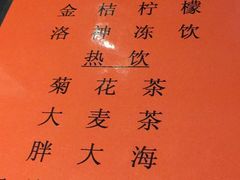 金桔柠檬
洛神冻饮
热饮
菊花茶
大麦茶
胖大海